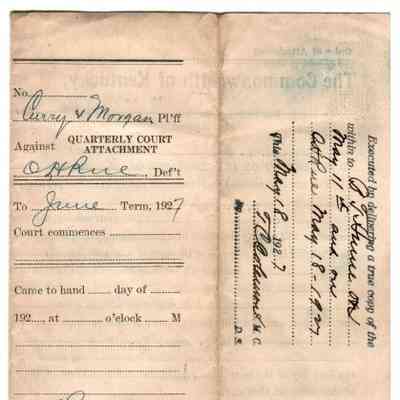 No.
Curry & Morgan Pl'ff
Against QUARTERLY COURT
ATTACHMENT
O H Rue, Def't
To June Term, 1927
Court commences
Came to hand ........ day of
192...., at ........ o'clock ..... M
The Commonwealth of Kentucky
Executed by delivering a true copy of the
within to
May 11th and on
May 18-1927
This May 18, 1927
M. C.
By
D. S.